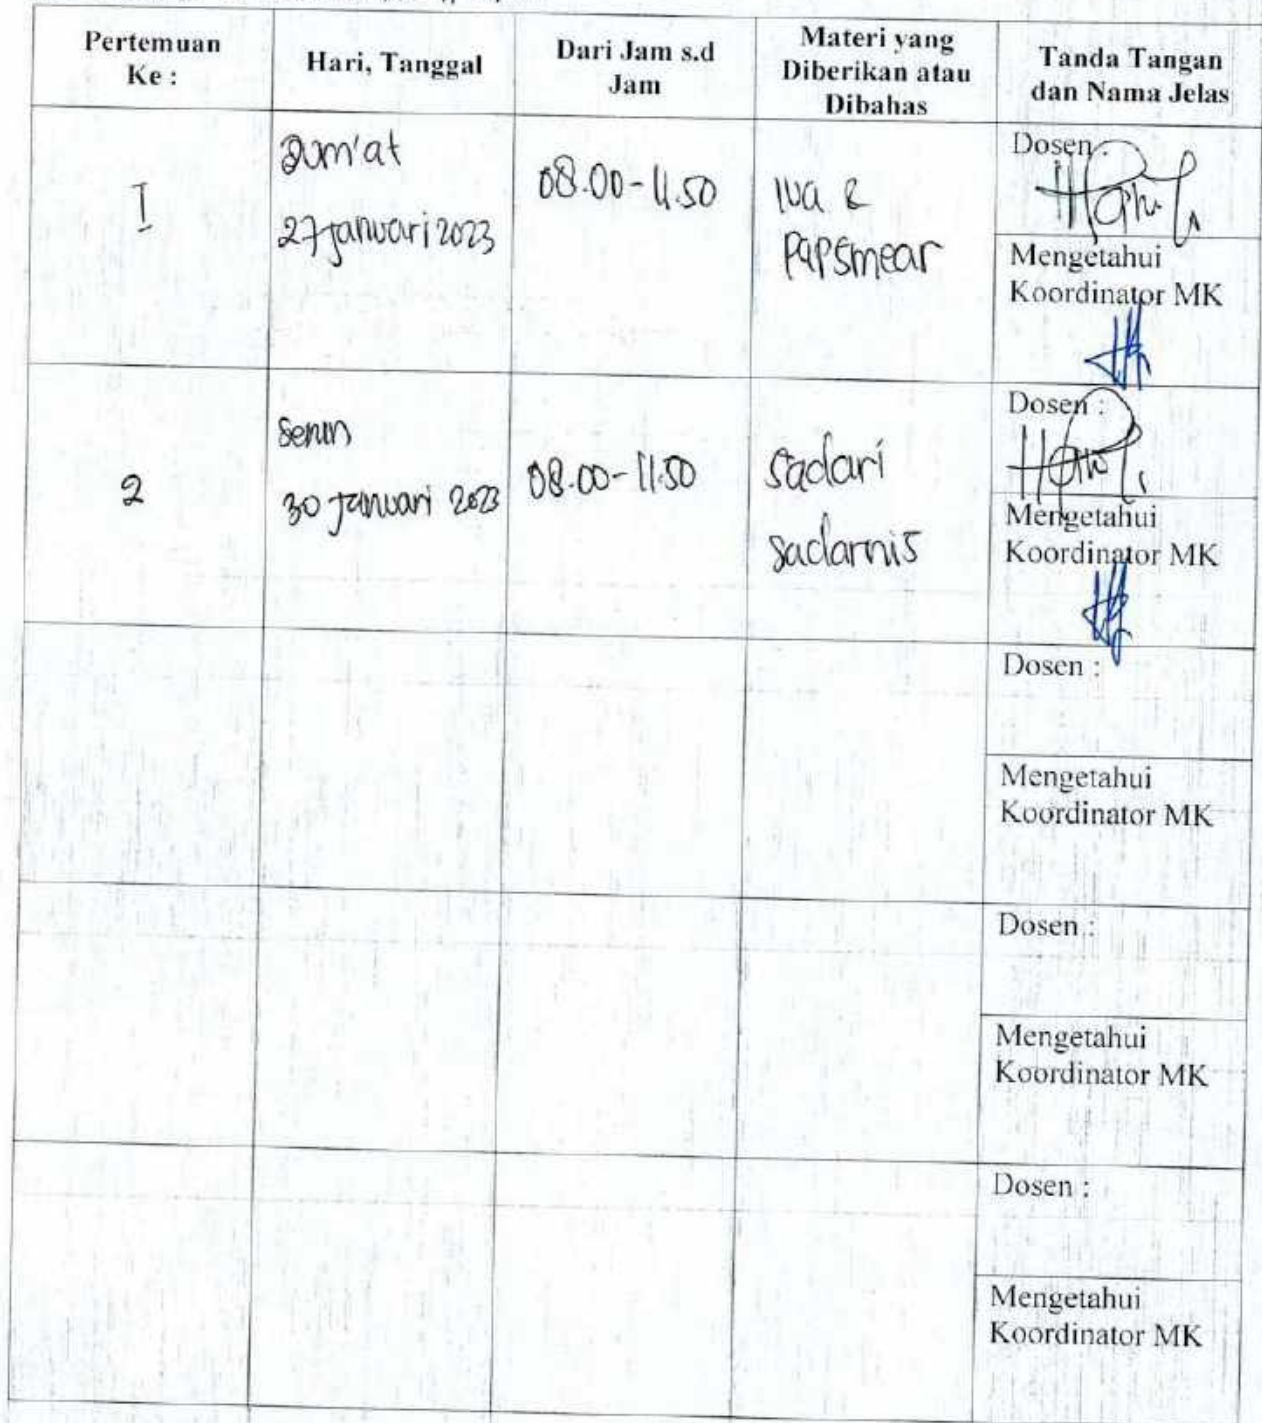 Pertemuan
Ke :
Hari, Tanggal
Dari Jam s.d
Jam
Materi yang
Diberikan atau
Dibahas
Tanda Tangan
dan Nama Jelas
I
Jum'at
27 Januari 2023
08.00-11.50
IVA &
Papsmear
Dosen :
Mengetahui
Koordinator MK
2
Senin
30 Januari 2023
08.00-11.50
Sadari
Sadarnis
Dosen :
Mengetahui
Koordinator MK
Dosen :
Mengetahui
Koordinator MK
Dosen :
Mengetahui
Koordinator MK
Dosen :
Mengetahui
Koordinator MK